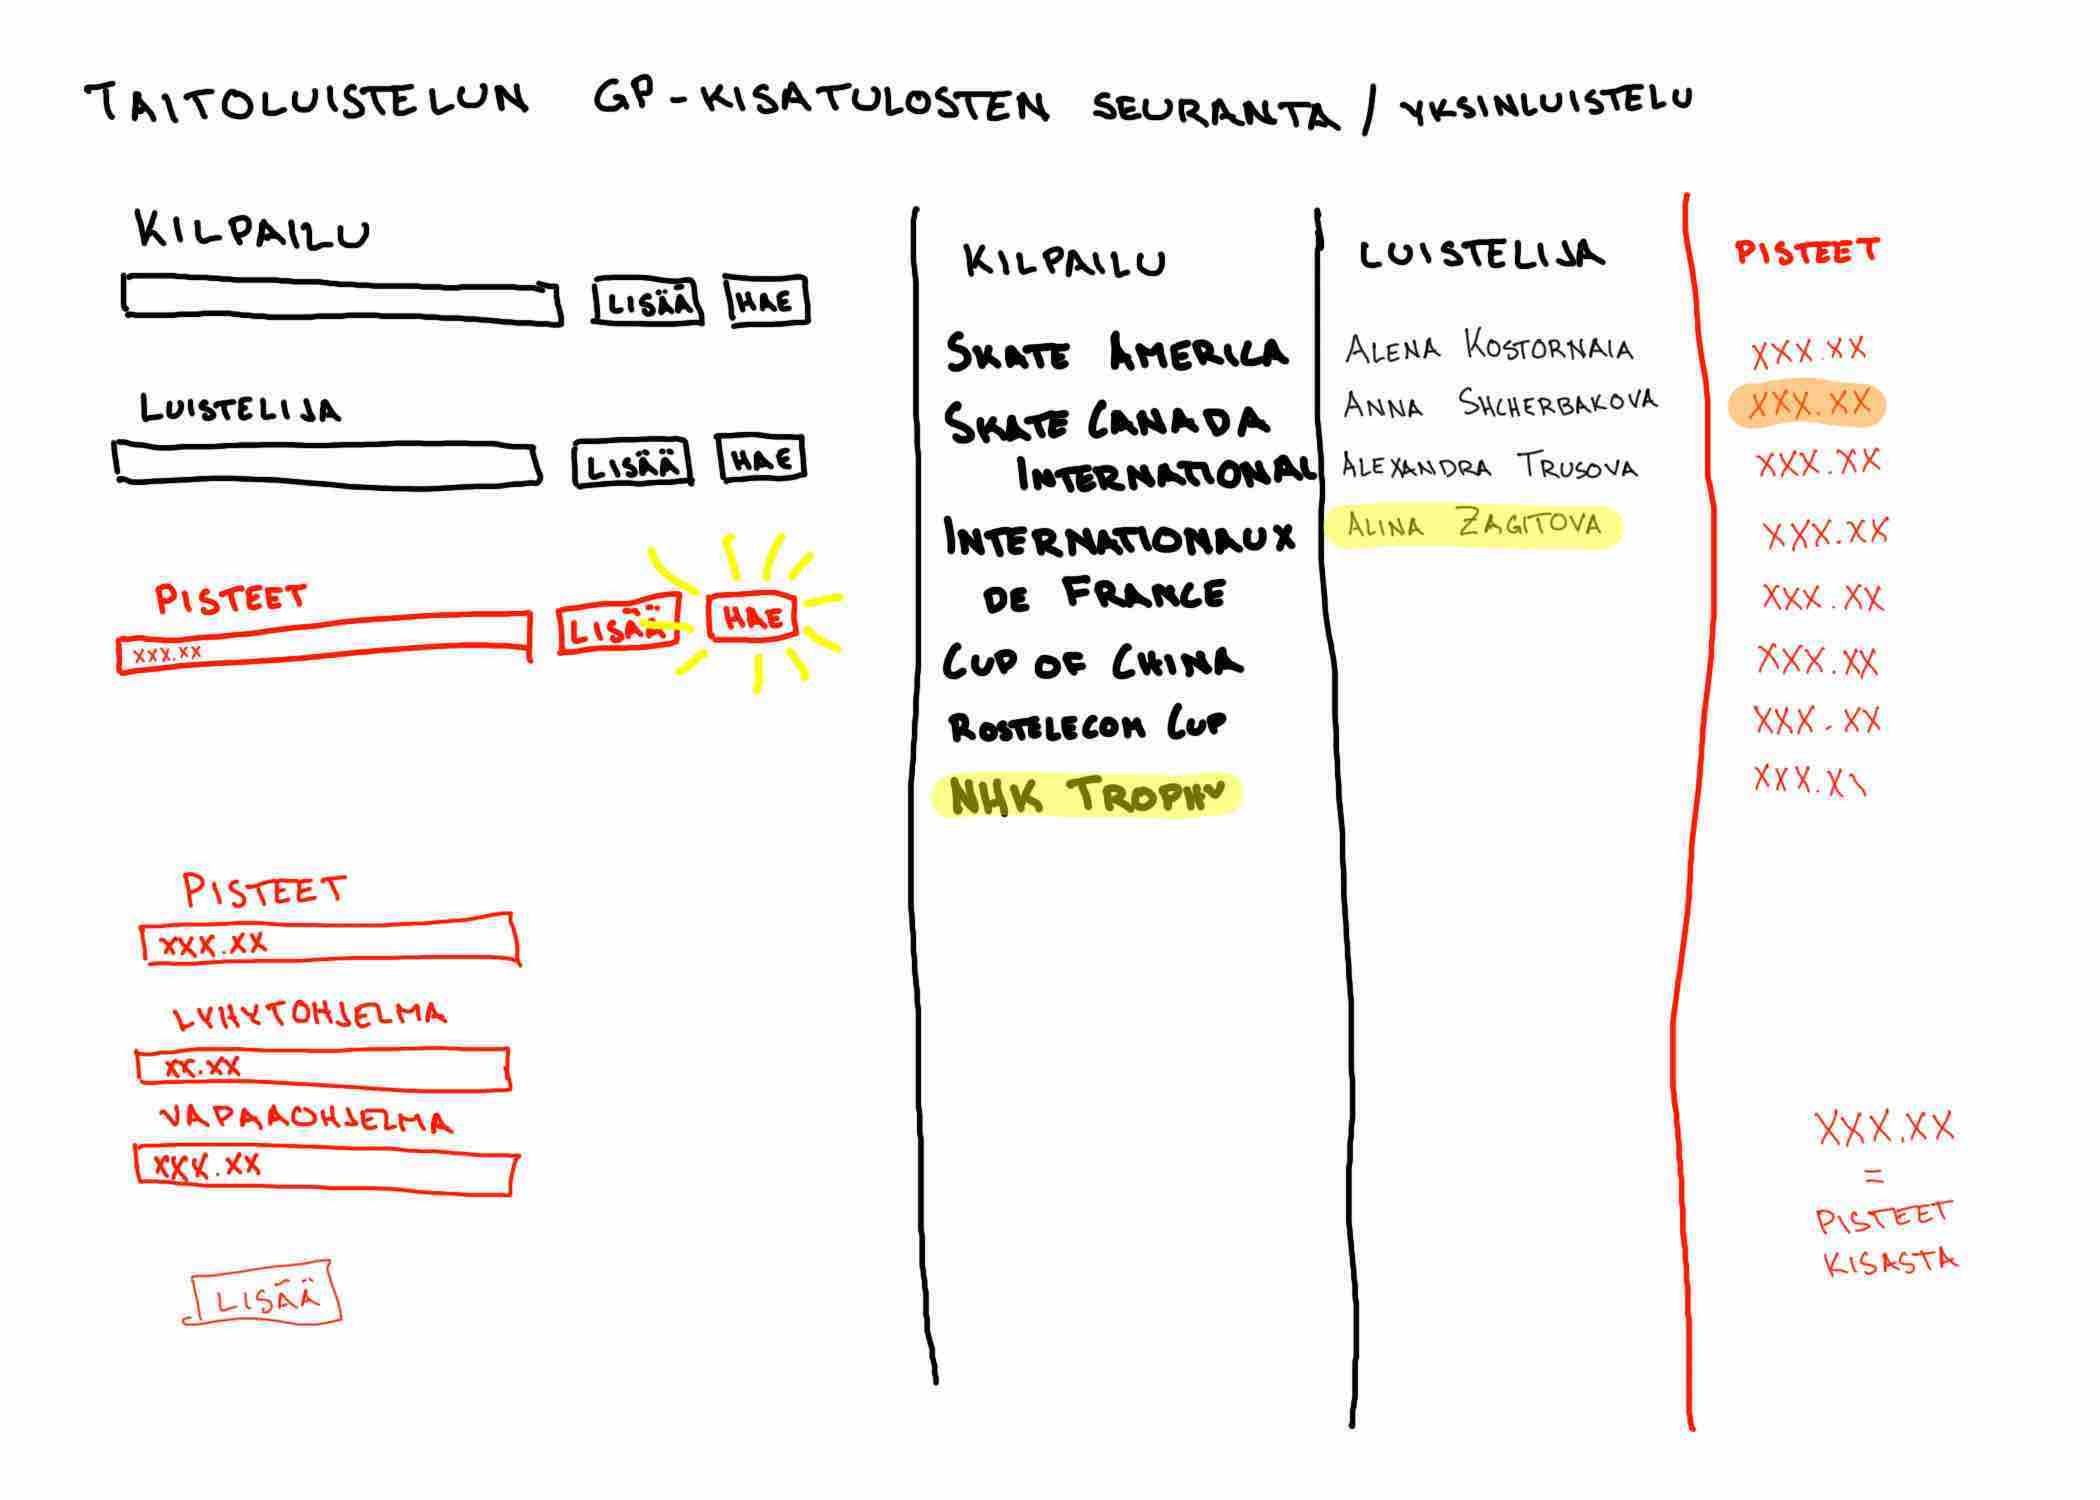 TAITOLUISTELUN GP-KISATULOSTEN SEURANTA / YKSINLUISTELU
KILPAILU
LISÄÄ HAE
LUISTELIJA
LISÄÄ HAE
PISTEET
XXX.XX LISÄÄ HAE
PISTEET
XXX.XX
LYHYTOHJELMA
XX.XX
VAPAAOHJELMA
XXX.XX
LISÄÄ
KILPAILU
SKATE AMERICA
SKATE CANADA
INTERNATIONAL
INTERNATIONAUX
DE FRANCE
CUP OF CHINA
ROSTELECOM CUP
NHK TROPHY
LUISTELIJA
ALENA KOSTORNAIA
ANNA SHCHERBAKOVA
ALEXANDRA TRUSOVA
ALINA ZAGITOVA
PISTEET
XXX.XX
XXX.XX
XXX.XX
XXX.XX
XXX.XX
XXX.XX
XXX.XX
XXX.XX
XXX.XX
=
PISTEET
KISASTA